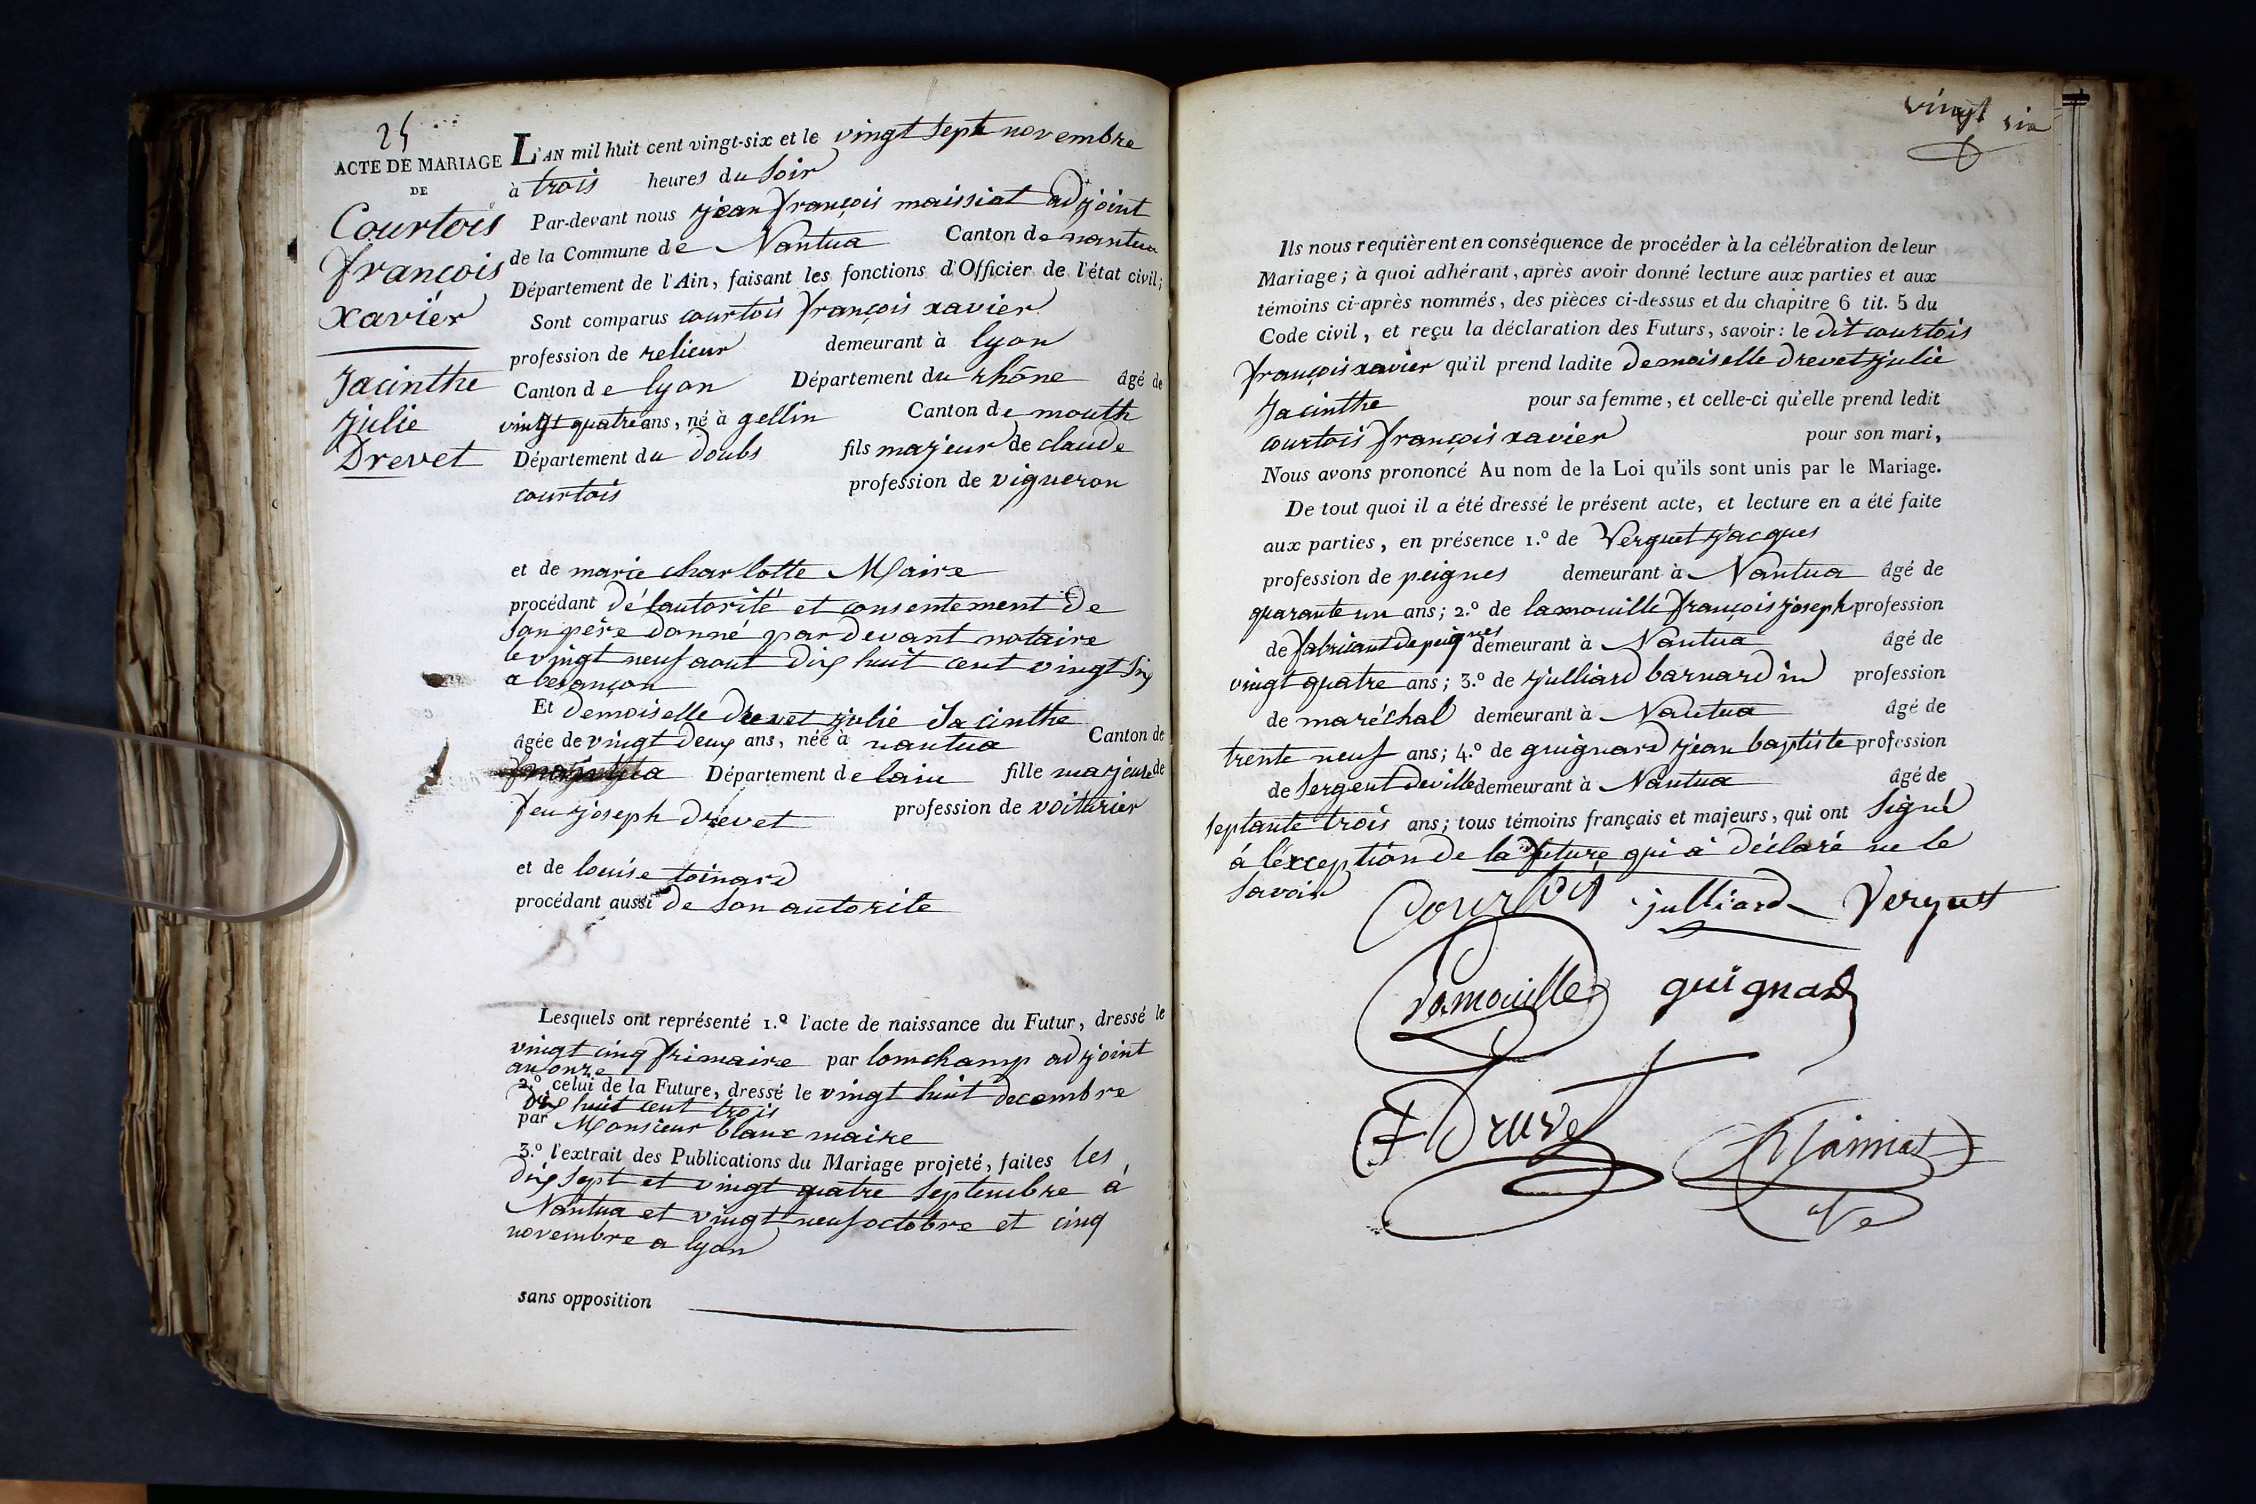 25
ACTE DE MARIAGE
DE
Courtois
françois
xavier
Jacinthe
julie
Drevet
L'AN mil huit cent vingt-six et le vingt sept novembre
à trois heures du soir
Par-devant nous jean françois maissiat adjoint
de la Commune de Nantua Canton de nantua
Département de l'Ain, faisant les fonctions d'Officier de l'état civil;
Sont comparus courtois françois xavier
profession de relieur demeurant à lyon
Canton de lyon Département du rhône âgé de
vingt quatre ans, né à gellin Canton de mouth
Département du doubs fils majeur de claude
courtois profession de vigneron
et de marie charlotte Maire
procédant de l'autorité et consentement de
son père donné par devant notaire
le vingt neuf aout dix huit cent vingt six
a besançon
Et demoiselle drevet julie Jacinthe
âgée de vingt deux ans, née à nantua Canton de
Département de lain fille majeure de
feu joseph drevet profession de voiturier
et de louise toinard
procédant aussi de son autorité
Lesquels ont représenté 1.º l'acte de naissance du Futur, dressé le
vingt cinq frimaire par lomchamp adjoint
an onze
2.º celui de la Future, dressé le vingt huit decembre
dix huit cent trois
par Monsieur blanc maire
3.º l'extrait des Publications du Mariage projeté, faites les
dix sept et vingt quatre septembre a
Nantua et vingt neuf octobre et cinq
novembre a lyon
sans opposition
vingt six
Ils nous requièrent en conséquence de procéder à la célébration de leur
Mariage; à quoi adhérant, après avoir donné lecture aux parties et aux
témoins ci-après nommés, des pièces ci-dessus et du chapitre 6 tit. 5 du
Code civil, et reçu la déclaration des Futurs, savoir: le dit courtois
françois xavier qu'il prend ladite demoiselle drevet julie
Jacinthe pour sa femme, et celle-ci qu'elle prend ledit
courtois françois xavier pour son mari,
Nous avons prononcé Au nom de la Loi qu'ils sont unis par le Mariage.
De tout quoi il a été dressé le présent acte, et lecture en a été faite
aux parties, en présence 1.º de Verguet jacques
profession de peignes demeurant à Nantua âgé de
quarante un ans; 2.º de lamouille françois joseph profession
de fabricant de peignes demeurant à Nantua âgé de
vingt quatre ans; 3.º de julliard barnardin profession
de maréchal demeurant à Nantua âgé de
trente neuf ans; 4.º de guignard jean baptiste profession
de sergent de ville demeurant à Nantua âgé de
septante trois ans; tous témoins français et majeurs, qui ont signé
á léxception de la future qui a déclaré ne le
savoir
Courtois julliard Verguet
Lamouille guignard